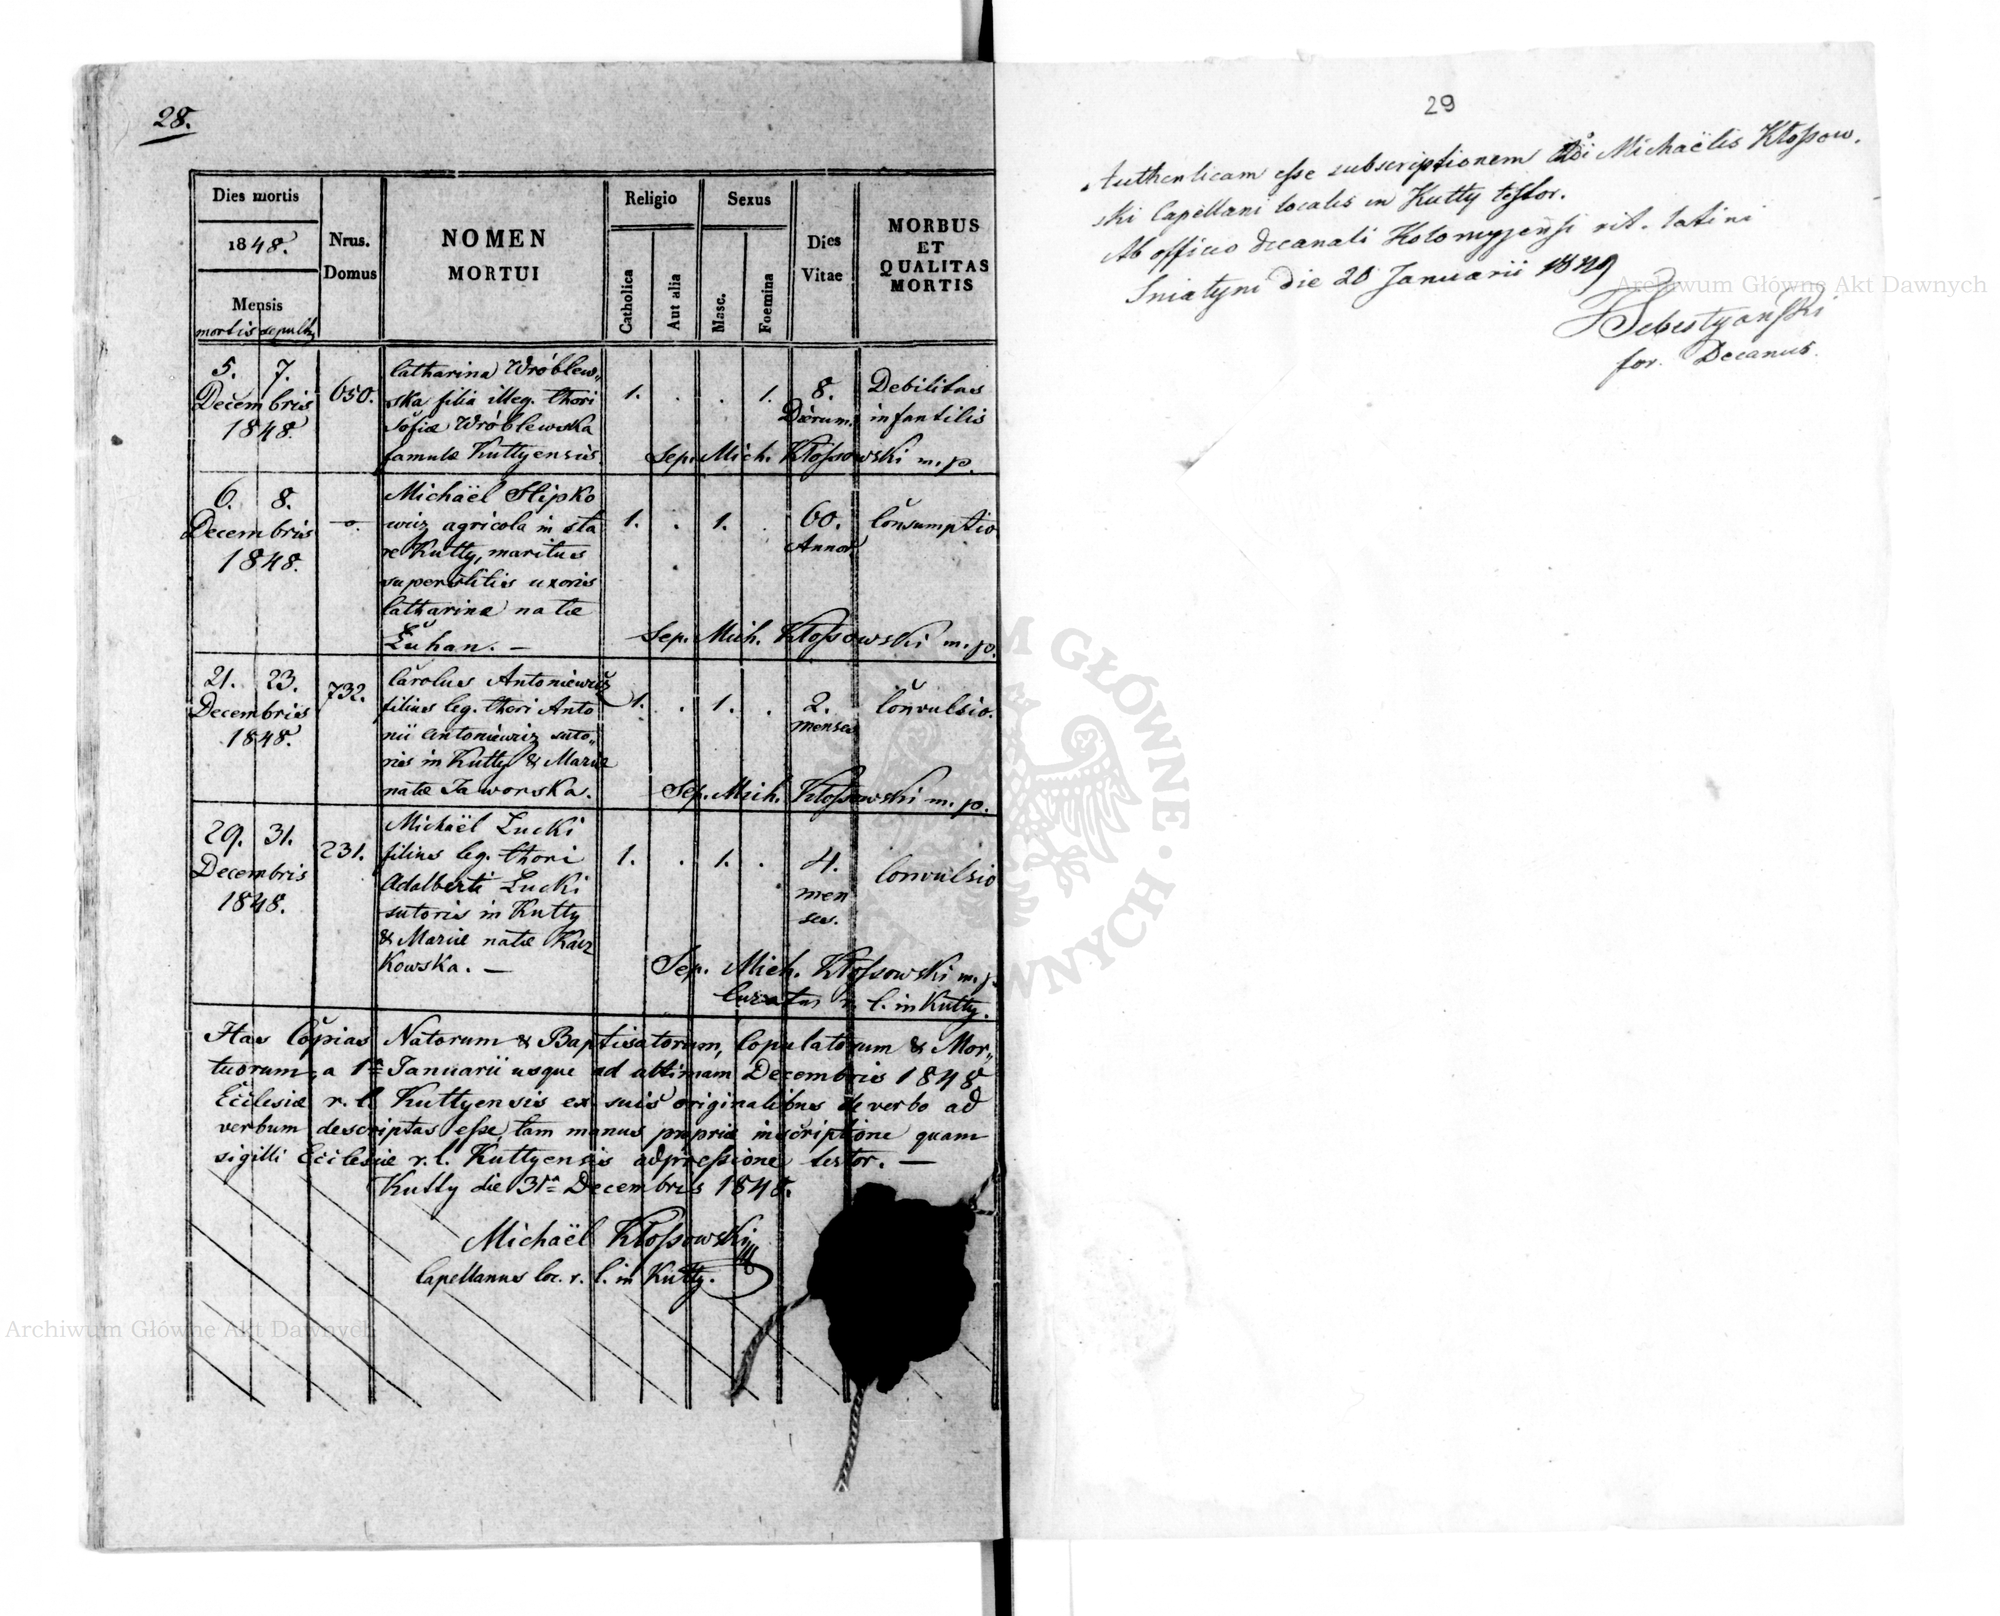 28.
Dies mortis
1848.
Mensis
mortis sepult.
Nrus.
Domus
NOMEN
MORTUI
Religio
Catholica
Aut alia
Sexus
Masc.
Foemina
Dies
Vitae
MORBUS
ET
QUALITAS
MORTIS
5. 7.
Decembris
1848.
650.
Catharina Wróblew„
ska filia illeg. thori
Sofiæ Wróblewska
famulæ Kuttyensis
1. . . 1.
8.
Dierum.
Debilitas
infantilis
Sep. Mich. Kłossowski m. p.
6. 8.
Decembris
1848.
-o-
Michaël Slipko
wicz agricola in sta
re Kutty, maritus
superstitis uxoris
Catharinæ natæ
Łuhan. —
1. . 1. .
60.
Annor.
Consumptio.
Sep. Mich. Kłossowski m. p.
21. 23.
Decembris
1848.
732.
Carolus Antoniewicz
filius leg. thori Anto
nii Antoniewicz suto„
ris in Kutty & Mariæ
natæ Jaworska.
1. . 1. .
2.
menses
Convulsio.
Sep. Mich. Kłossowski m. p.
29. 31.
Decembris
1848.
231.
Michaël Łucki
filius leg. thori
Adalberti Łucki
sutoris in Kutty
& Mariæ natæ Kacz
kowska. —
1. . 1. .
4.
men
ses.
Convulsio
Sep. Mich. Kłossowski m. p.
Curatus r. l. in Kutty.
Has Copias Natorum & Baptisatorum, Copulatorum & Mor„
tuorum, a 1ª Januarii usque ad ultimam Decembris 1848
Ecclesiæ r. l. Kuttyensis ex suis originalibus de verbo ad
verbum descriptas esse, tam manus propriæ inscriptione quam
sigilli Ecclesiæ r. l. Kuttyensis adpressione testor. —
Kutty die 31ª Decembris 1848.
Michaël Kłossowski
Capellanus loc. r. l. in Kutty.
29
Authenticam esse subscriptionem Michaëlis Kłossow.
ski Capellani localis in Kutty testor.
Ab officio decanali Kolomyjensi rit. latini
Sniatyni die 28 Januarii 1849
Sebestyański
for. Decanus.
Archiwum Główne Akt Dawnych
Archiwum Główne Akt Dawnych
GŁÓWNE
DAWNYCH